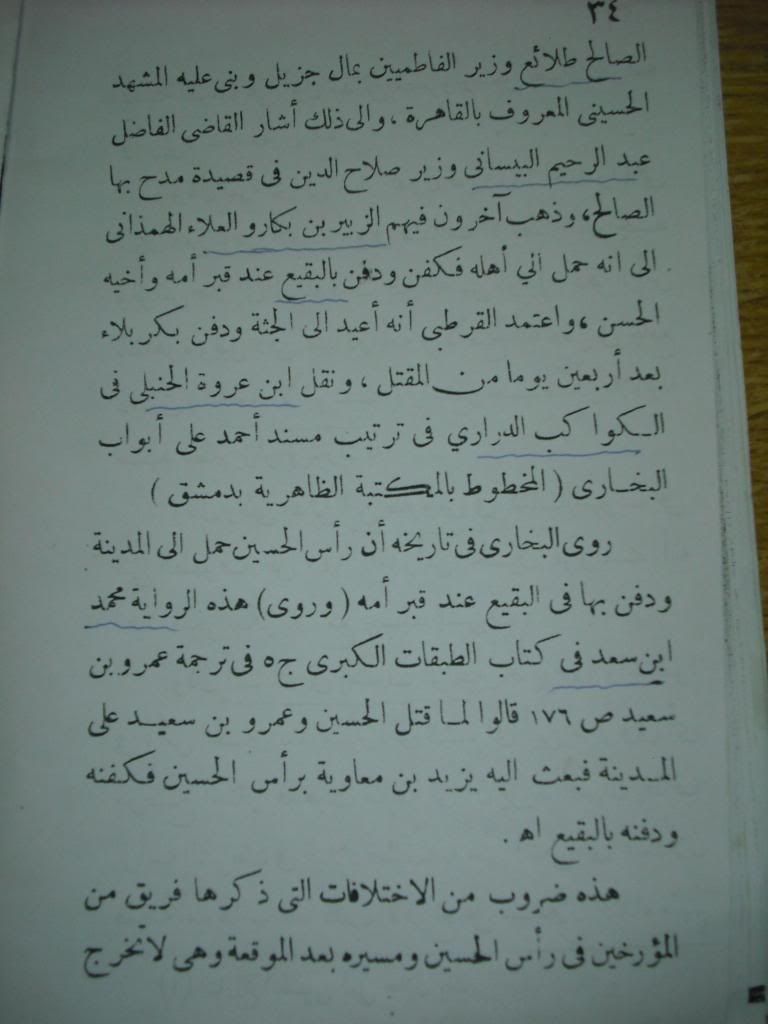 ٣٤
الصالح طلائع وزير الفاطميين بمال جزيل وبنى عليه المشهد
الحسينى المعروف بالقاهرة ، والى ذلك أشار االقاضى الفاضل
عبد الرحيم البيسانى وزير صلاح الدين فى قصيدة مدح بها
الصالح، وذهب آخرون فيهم الزبير بن بكار و العلاء الهمذانى
الى انه حمل الي أهله فكفن ودفن بالبقيع عند قبر أمه وأخيه
الحسن ، واعتمد القرطبى أنه أعيد الى الجثة ودفن بكربلاء
بعد أربعين يوما من المقتل ، ونقل ابن عروة الحنبلى فى
الكواكب الدراري فى ترتيب مسند أحمد على أبواب
البخارى ( المخطوط بالمكتبة الظاهرية بدمشق )
روى البخارى فى تاريخه أن رأس الحسين حمل الى المدينة
ودفن بها فى البقيع عند قبر أمه ( وروى ) هذه الرواية محمد
ابن سعد فى كتاب الطبقات الكبرى ج٥ فى ترجمة عمرو بن
سعيد ص ١٧٦ قالوا لما قتل الحسين وعمرو بن سعيد على
المدينة فبعث اليه يزيد بن معاوية برأس الحسين فكفنه
ودفنه بالبقيع اه .
هذه ضروب من الاختلافات التى ذكرها فريق من
المؤرخين فى رأس الحسين ومسيره بعد الموقعة وهى لا تخرج